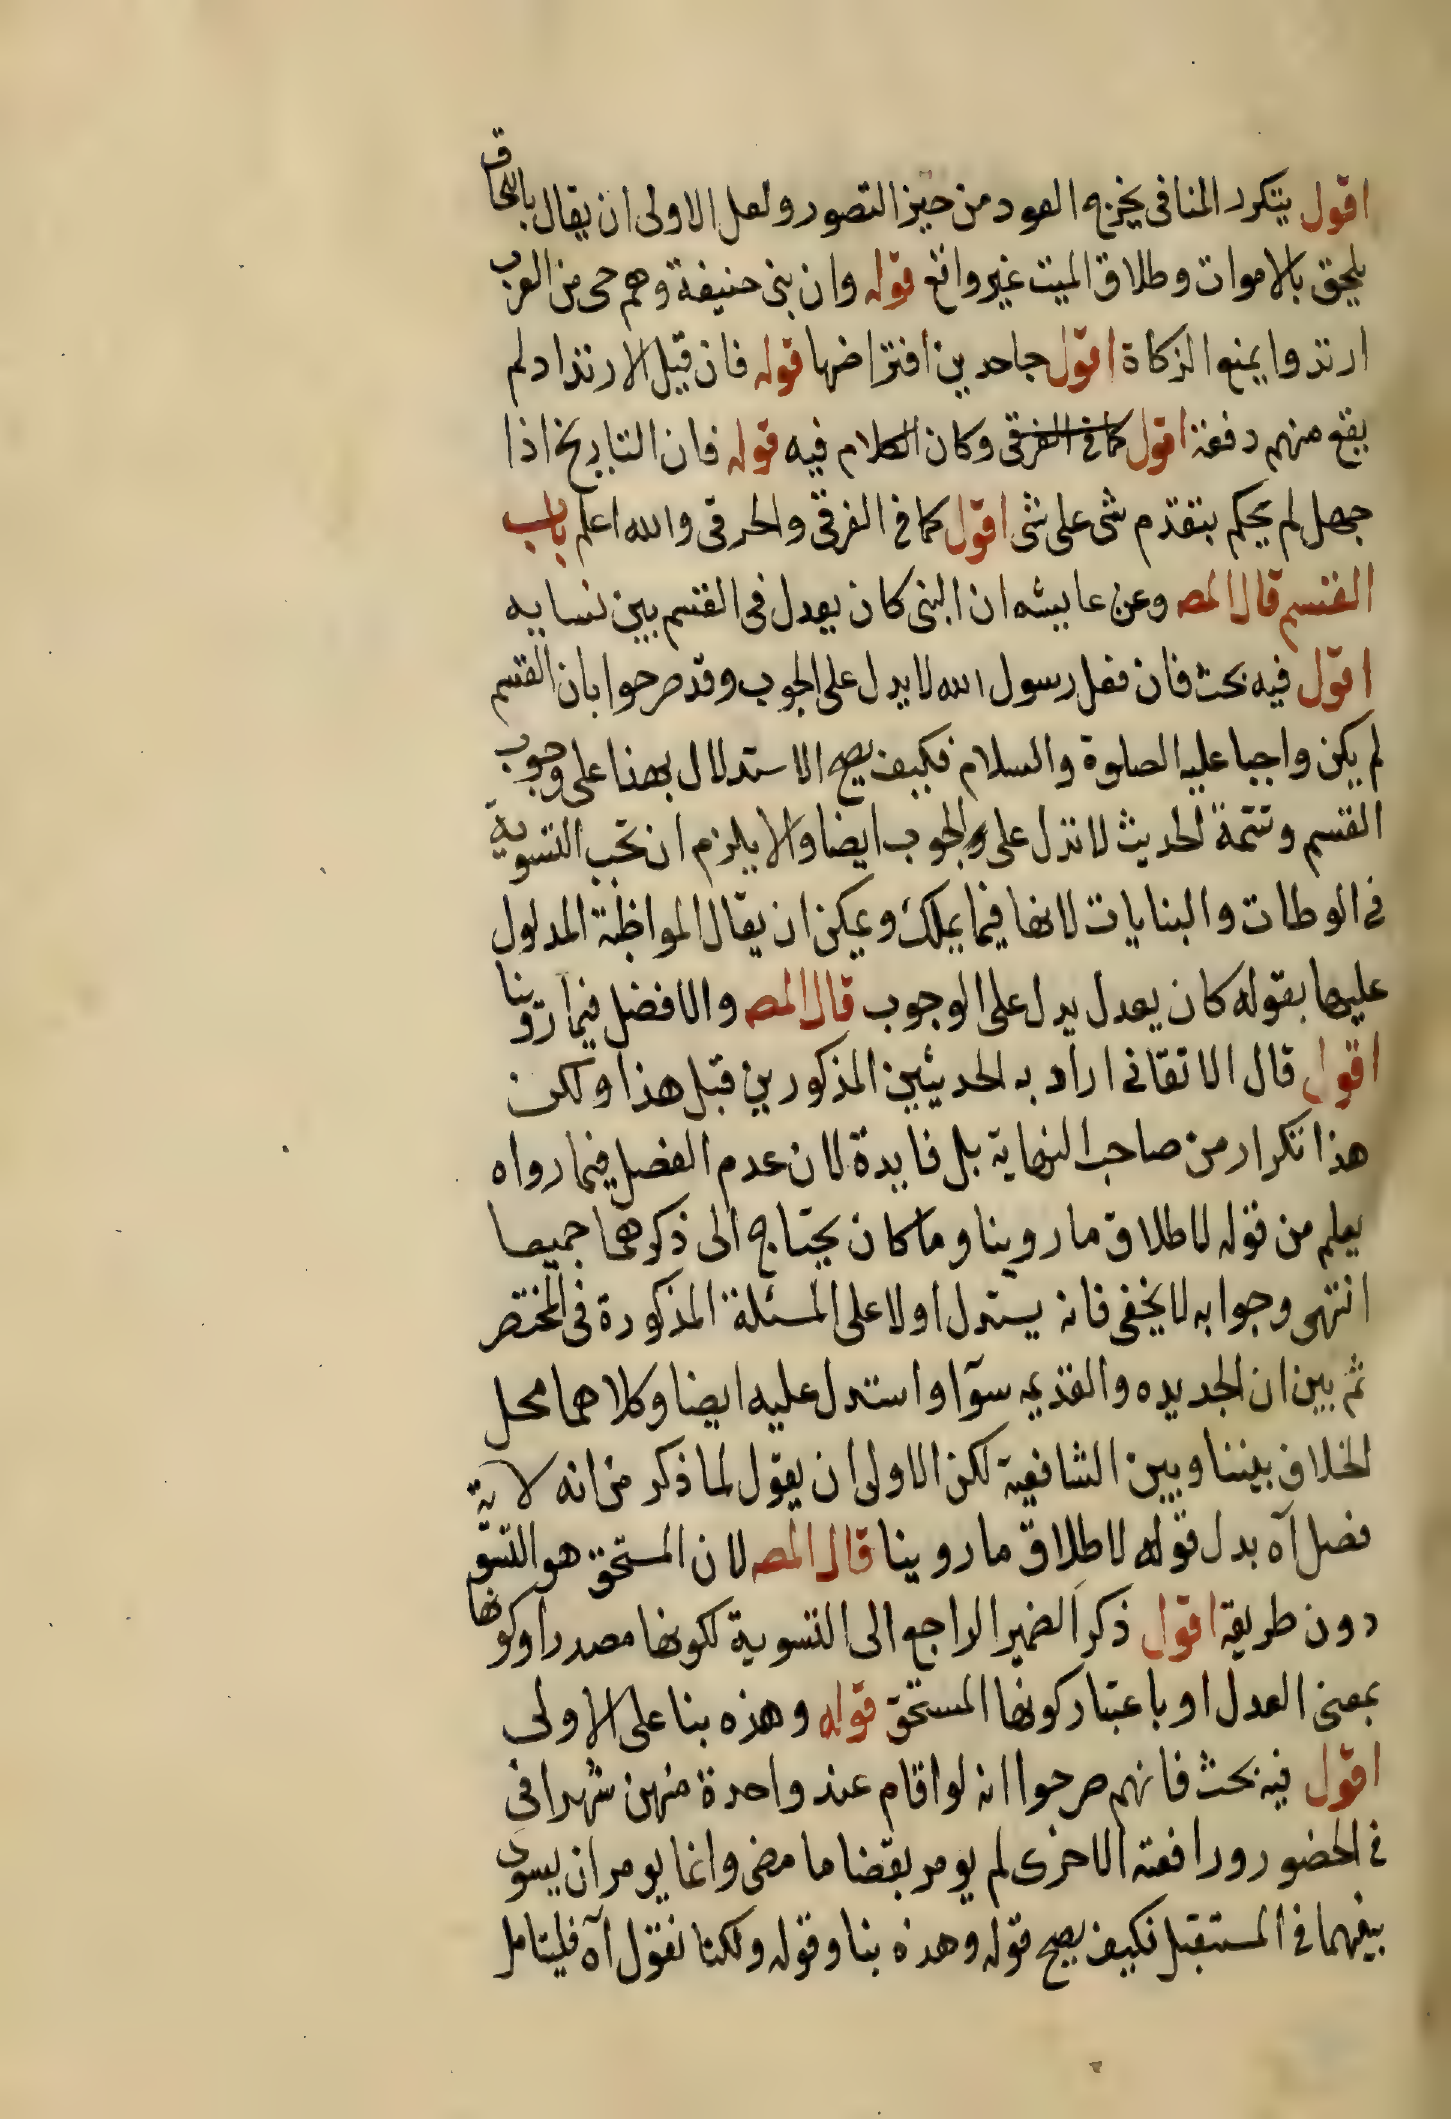 اقول يتكرر المنافى يخرج العود من حيز التصور ولعل الاولى ان يقال باللحاق
يلحق بالاموات وطلاق الميت غير واقع قوله وان بنى حنيفة وهم حى من العرب
ارتدوا بمنع الزكاة اقول جاحدين افتراضها قوله فان قيل الارتداد لم
يقع منهم دفعة اقول كما فى الغرقى وكان الكلام فيه قوله فان التاريخ اذا
جهل لم يحكم بتقدم شى على شى اقول كما فى الغرقى والحرقى والله اعلم باب
القسم قال المص وعن عايشه ان النبى كان يعدل فى القسم بين نسايه
اقول فيه بحث فان فعل رسول الله لا يدل على الوجوب وقد صرحوا بان القسم
لم يكن واجبا عليه الصلوة والسلام فكيف يصح الاستدلال بهذا على وجوب
القسم وتتمة الحديث لا تدل على الوجوب ايضا والا يلزم ان تجب التسوية
فى الوطات والبنايات لانها فيما يملك ويمكن ان يقال المواظبة المدلول
عليها بقوله كان يعدل يدل على الوجوب قال المص والافضل فيما روينا
اقول قال الاتقانى اراد به الحديثين المذكورين قبل هذا ولكن
هذا تكرار من صاحب النهاية بل فايدة لان عدم الفضل فيما رواه
يعلم من قوله لاطلاق ما روينا وما كان يحتاج الى ذكرهما جميعا
انتهى وجوابه لا يخفى فانه يستدل اولا على المسئلة المذكورة فى المختصر
ثم بين ان الجديده والقديمه سوآ واستدل عليه ايضا وكلاهما محل
الخلاف بيننا وبين الشافعية لكن الاولى ان يقول لما ذكر من انه لا
فصل آه بدل قوله لاطلاق ما روينا قال المص لان المستحق هو التسوية
دون طريقه اقول ذكر الضمير الراجع الى التسوية لكونها مصدرا وكونها
بمعنى العدل او باعتبار كونها المستحق قوله وهذه بنا على الاولى
اقول فيه بحث فانهم صرحوا انه لو اقام عند واحدة منهن شهرا فى
فى الحضور ورافعته الاخرى لم يومر بقضا ما مضى وانما يومر ان يسوى
بينهما فى المستقبل فكيف يصح قوله وهذه بنا وقوله ولكنا نقول آه فليتامل